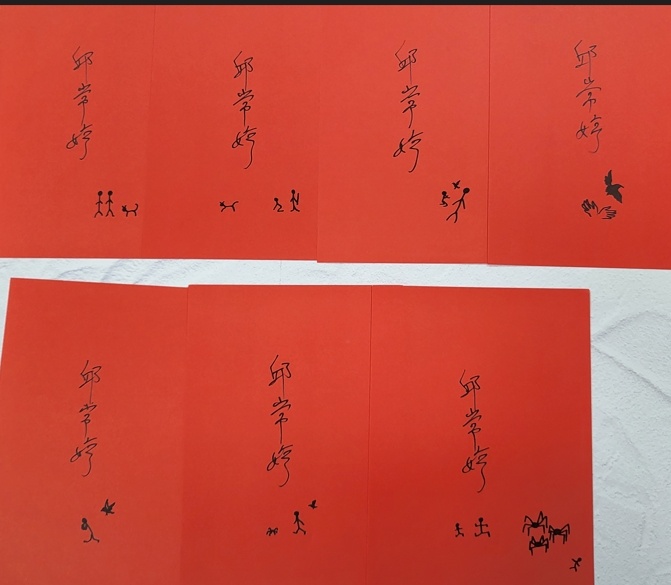 邱常婷
邱常婷
邱常婷
邱常婷
邱常婷
邱常婷
邱常婷